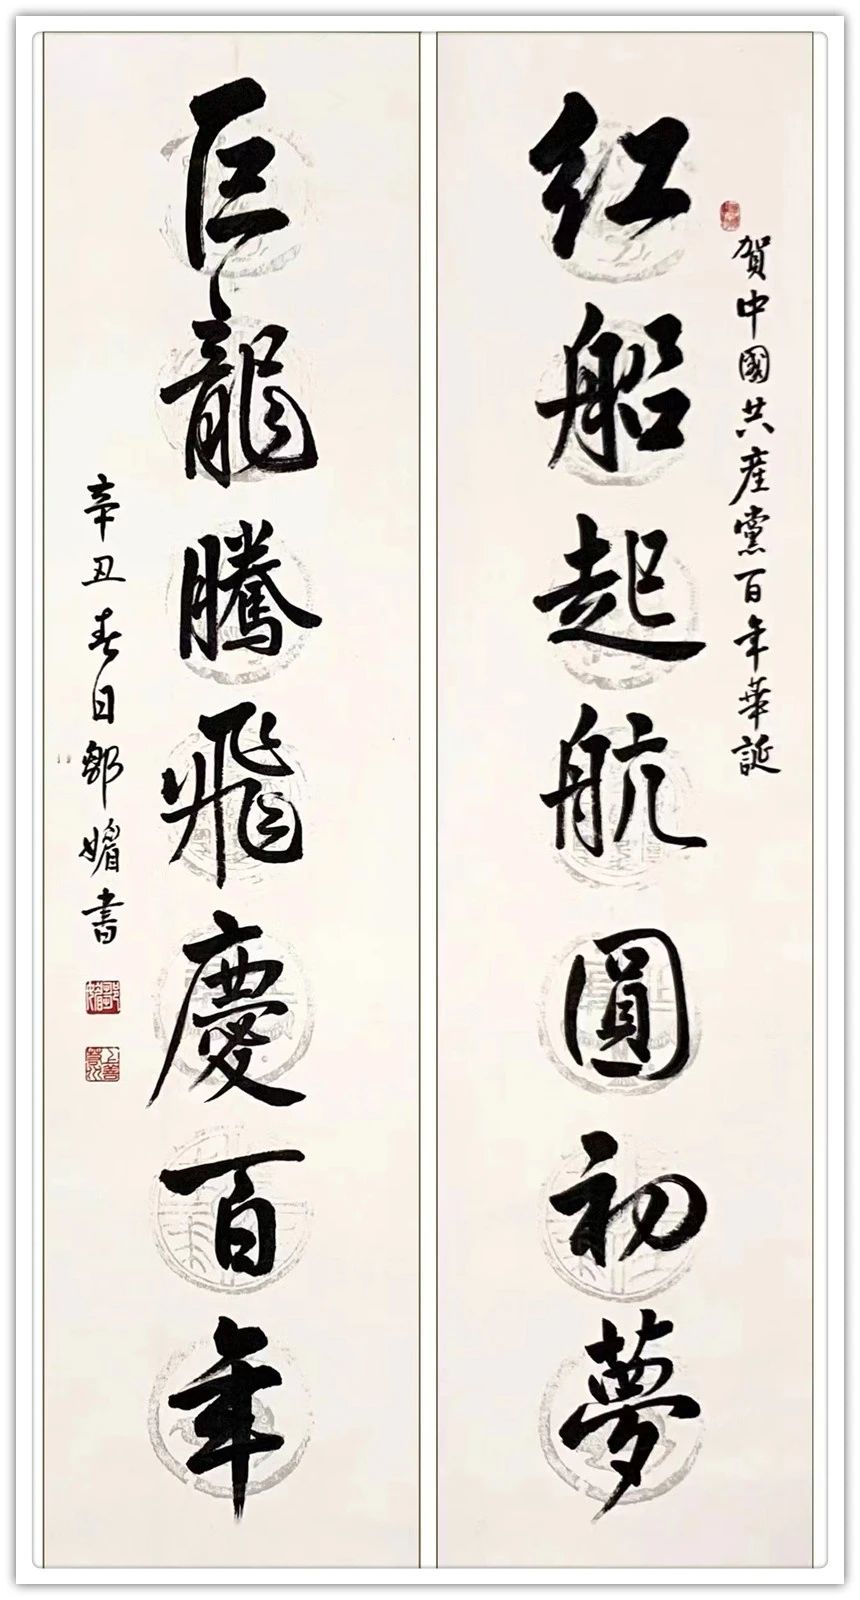 賀中國共産黨百年華誕
红船起航圓初夢
巨龍騰飛慶百年
辛丑春日鄒媚書